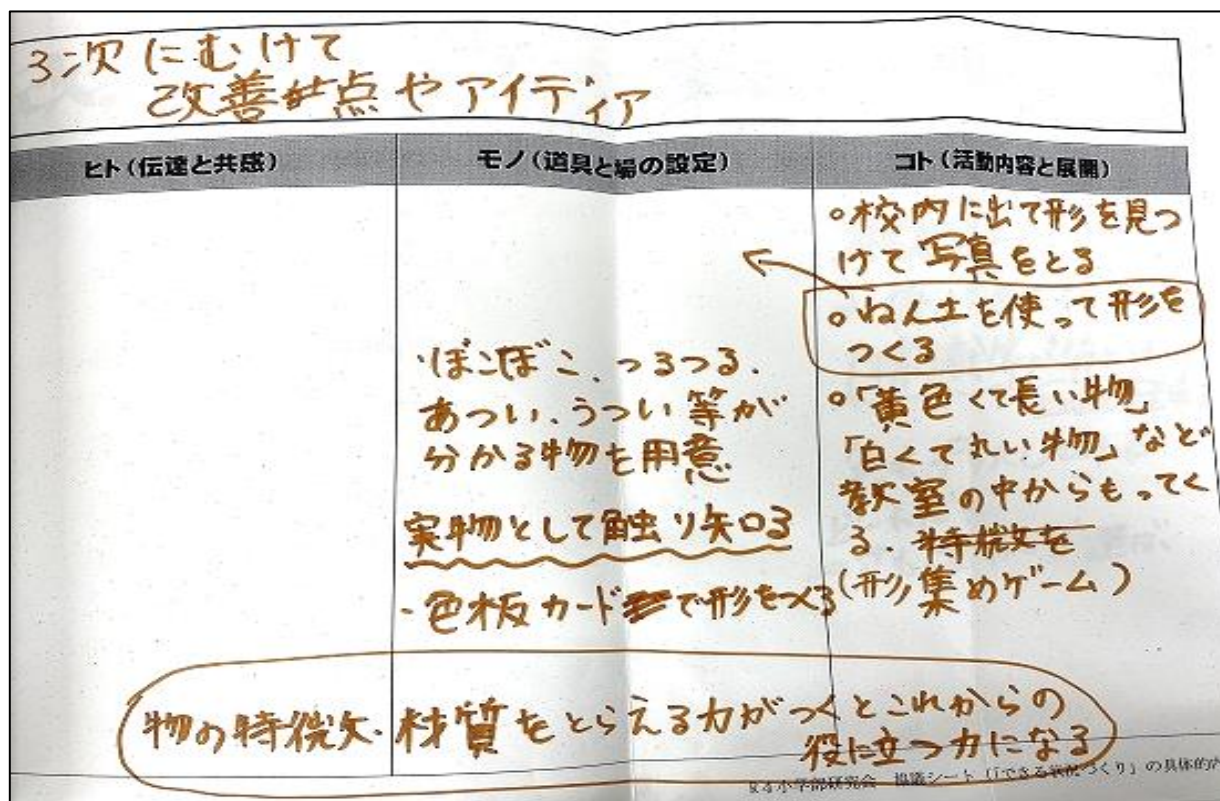 3次にむけて
改善点やアイディア
ヒト(伝達と共感)
モノ(道具と場の設定)
・ぼこぼこ、つるつる、
あつい、うつい等が
分かる物を用意
実物として触り知る
・色板カードで形をつくる
コト(活動内容と展開)
○校内に出て形を見つ
けて写真をとる
○ねん土を使って形を
つくる
○「黄色くて長い物」
「白くて丸い物」など
教室の中からもってく
る. 特徴を
(形集めゲーム)
物の特徴・材質をとらえる力がつくとこれからの
役に立つ力になる
R4小学部研究会 協議シート(「できる状況づくり」の具体的内